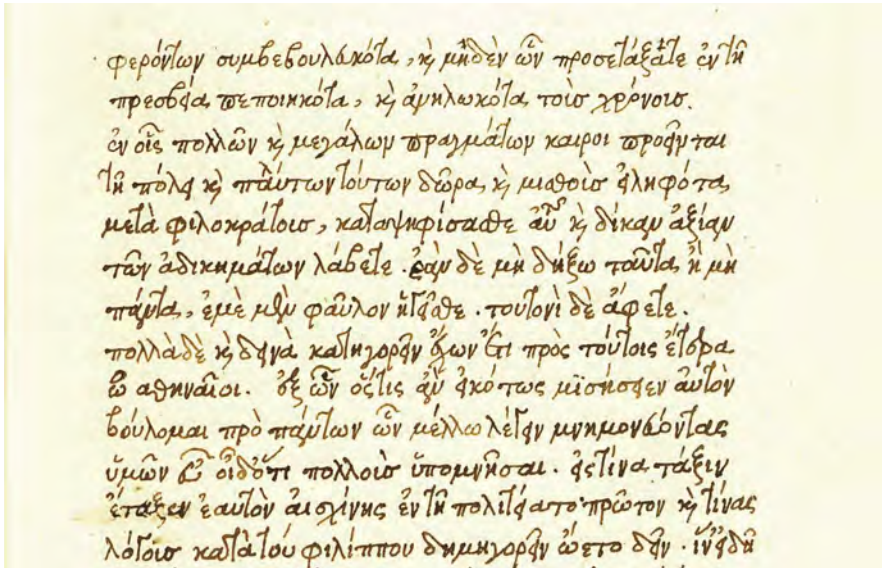 φερόντων συμβεβουλευκότα, κ̀ μηδὲν ὧν προσετάξατε ἐν τῆ
πρεσβεία πεποιηκότα, κ̀ ἀνηλωκότα τοὺσ χρόνουσ.
ἐν οἷς πολλῶν κ̀ μεγάλων πραγμάτων καιροι προεῖνται
τῆ πόλει κ̀ πάντων τούτων δῶρα κ̀ μισθοὺσ εἰληφότα
μετὰ φιλοκράτουσ, καταψηφίσασθε αὐτοῦ κ̀ δίκην ἀξίαν
τῶν ἀδικημάτων λάβετε. ἐὰν δὲ μὴ δείξω ταῦτα ἢ μὴ
πάντα, ἐμὲ μὲν φαῦλον ἡγεῖσθε. τουτονὶ δὲ ἄφετε.
πολλὰ δὲ κ̀ δεινὰ κατηγορεῖν ἔχων ἔτι πρὸς τούτοις ἕτερα
ὦ αθηναῖοι. ἐξ ὧν ὅςτις ἂν εἰκότως μϊσήσειεν αὐτὸν
βούλομαι πρὸ πάντων ὧν μέλλω λέγειν μνημονεύοντας
ὑμῶν εὖ οἶδ ὅτι πολλοὺσ ὑπομνῆσαι. εἰς τίνα τάξιν
ἔταξεν ἑαυτὸν αισχίνης ἐν τῆ πολιτεία το πρῶτον κ̀ τίνας
λόγουσ κατὰ τοῦ φιλίππου δημηγορεῖν ὤετο δεῖν. ἵν εἰδῆ